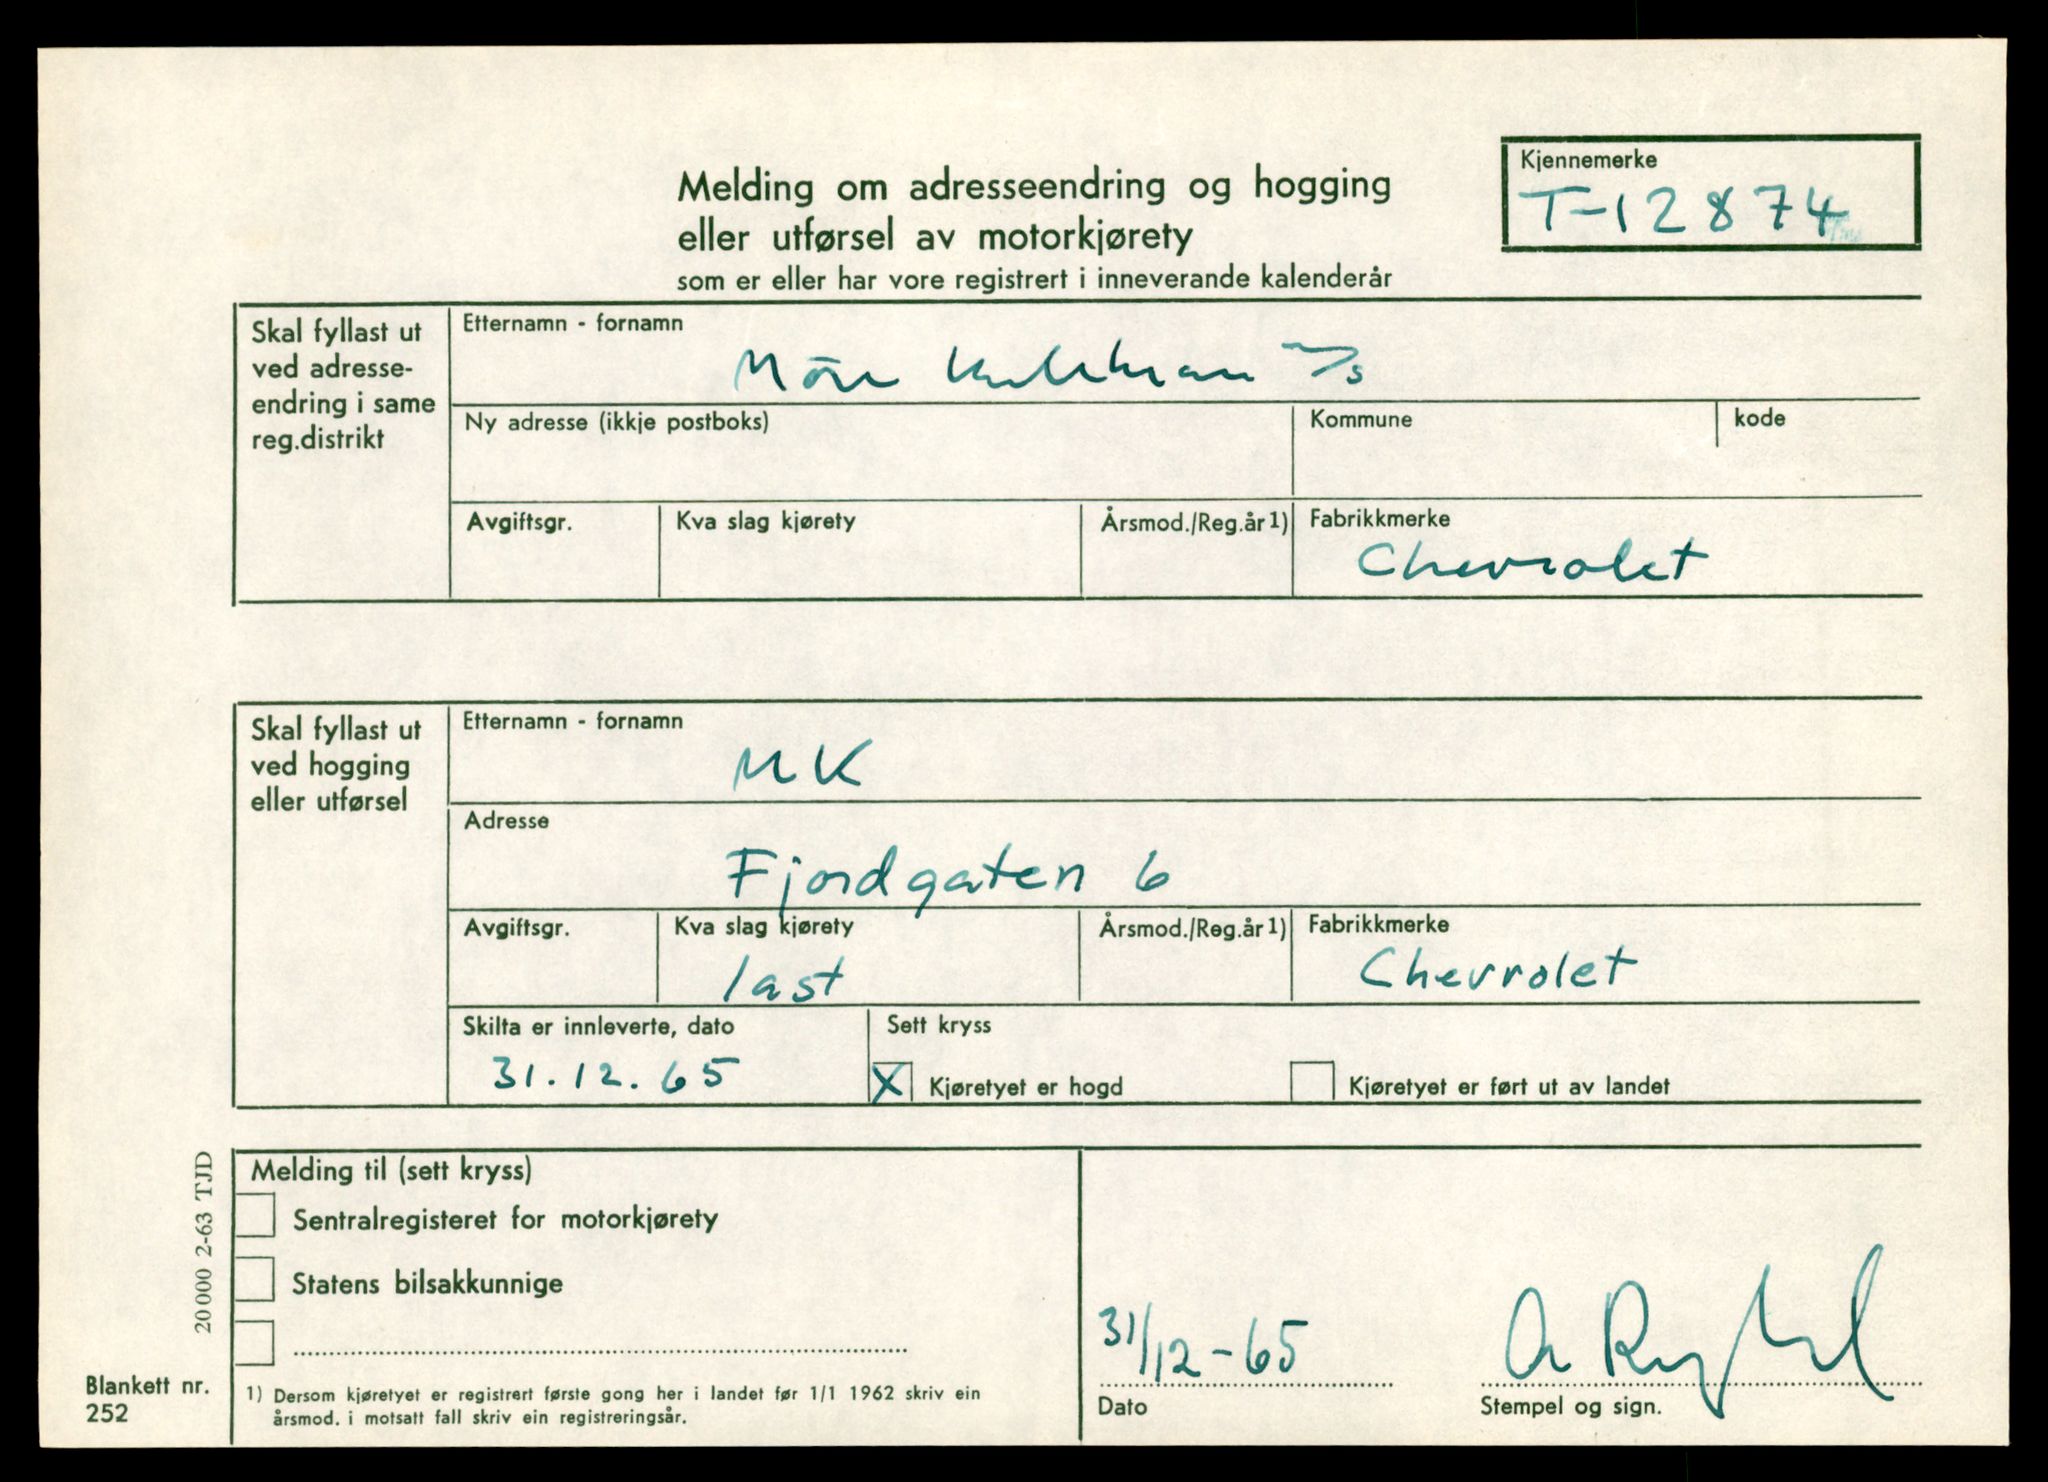 Kjennemerke
T-12874
Melding om adresseendring og hogging
eller utførsel av motorkjørety
som er eller har vore registrert i inneverande kalenderår
Skal fyllast ut
ved adresse-
endring i same
reg.distrikt
Etternamn - fornamn
Möre
Ny adresse (ikkje postboks)
Kommune
kode
Avgiftsgr.
Kva slag kjørety
Årsmod./Reg.år 1)
Fabrikkmerke
Chevrolet
Skal fyllast ut
ved hogging
eller utførsel
Etternamn - fornamn
MK
Adresse
Fjordgaten 6
Avgiftsgr.
Kva slag kjørety
last
Årsmod./Reg.år 1)
Fabrikkmerke
Chevrolet
Skilta er innleverte, dato
31.12.65
Sett kryss
X Kjøretyet er hogd
Kjøretyet er ført ut av landet
Melding til (sett kryss)
Sentralregisteret for motorkjørety
Statens bilsakkunnige
31/12-65
Dato
Stempel og sign.
1) Dersom kjøretyet er registrert første gong her i landet før 1/1 1962 skriv ein
årsmod. i motsatt fall skriv ein registreringsår.
20000 2-63 TJD
Blankett nr.
252